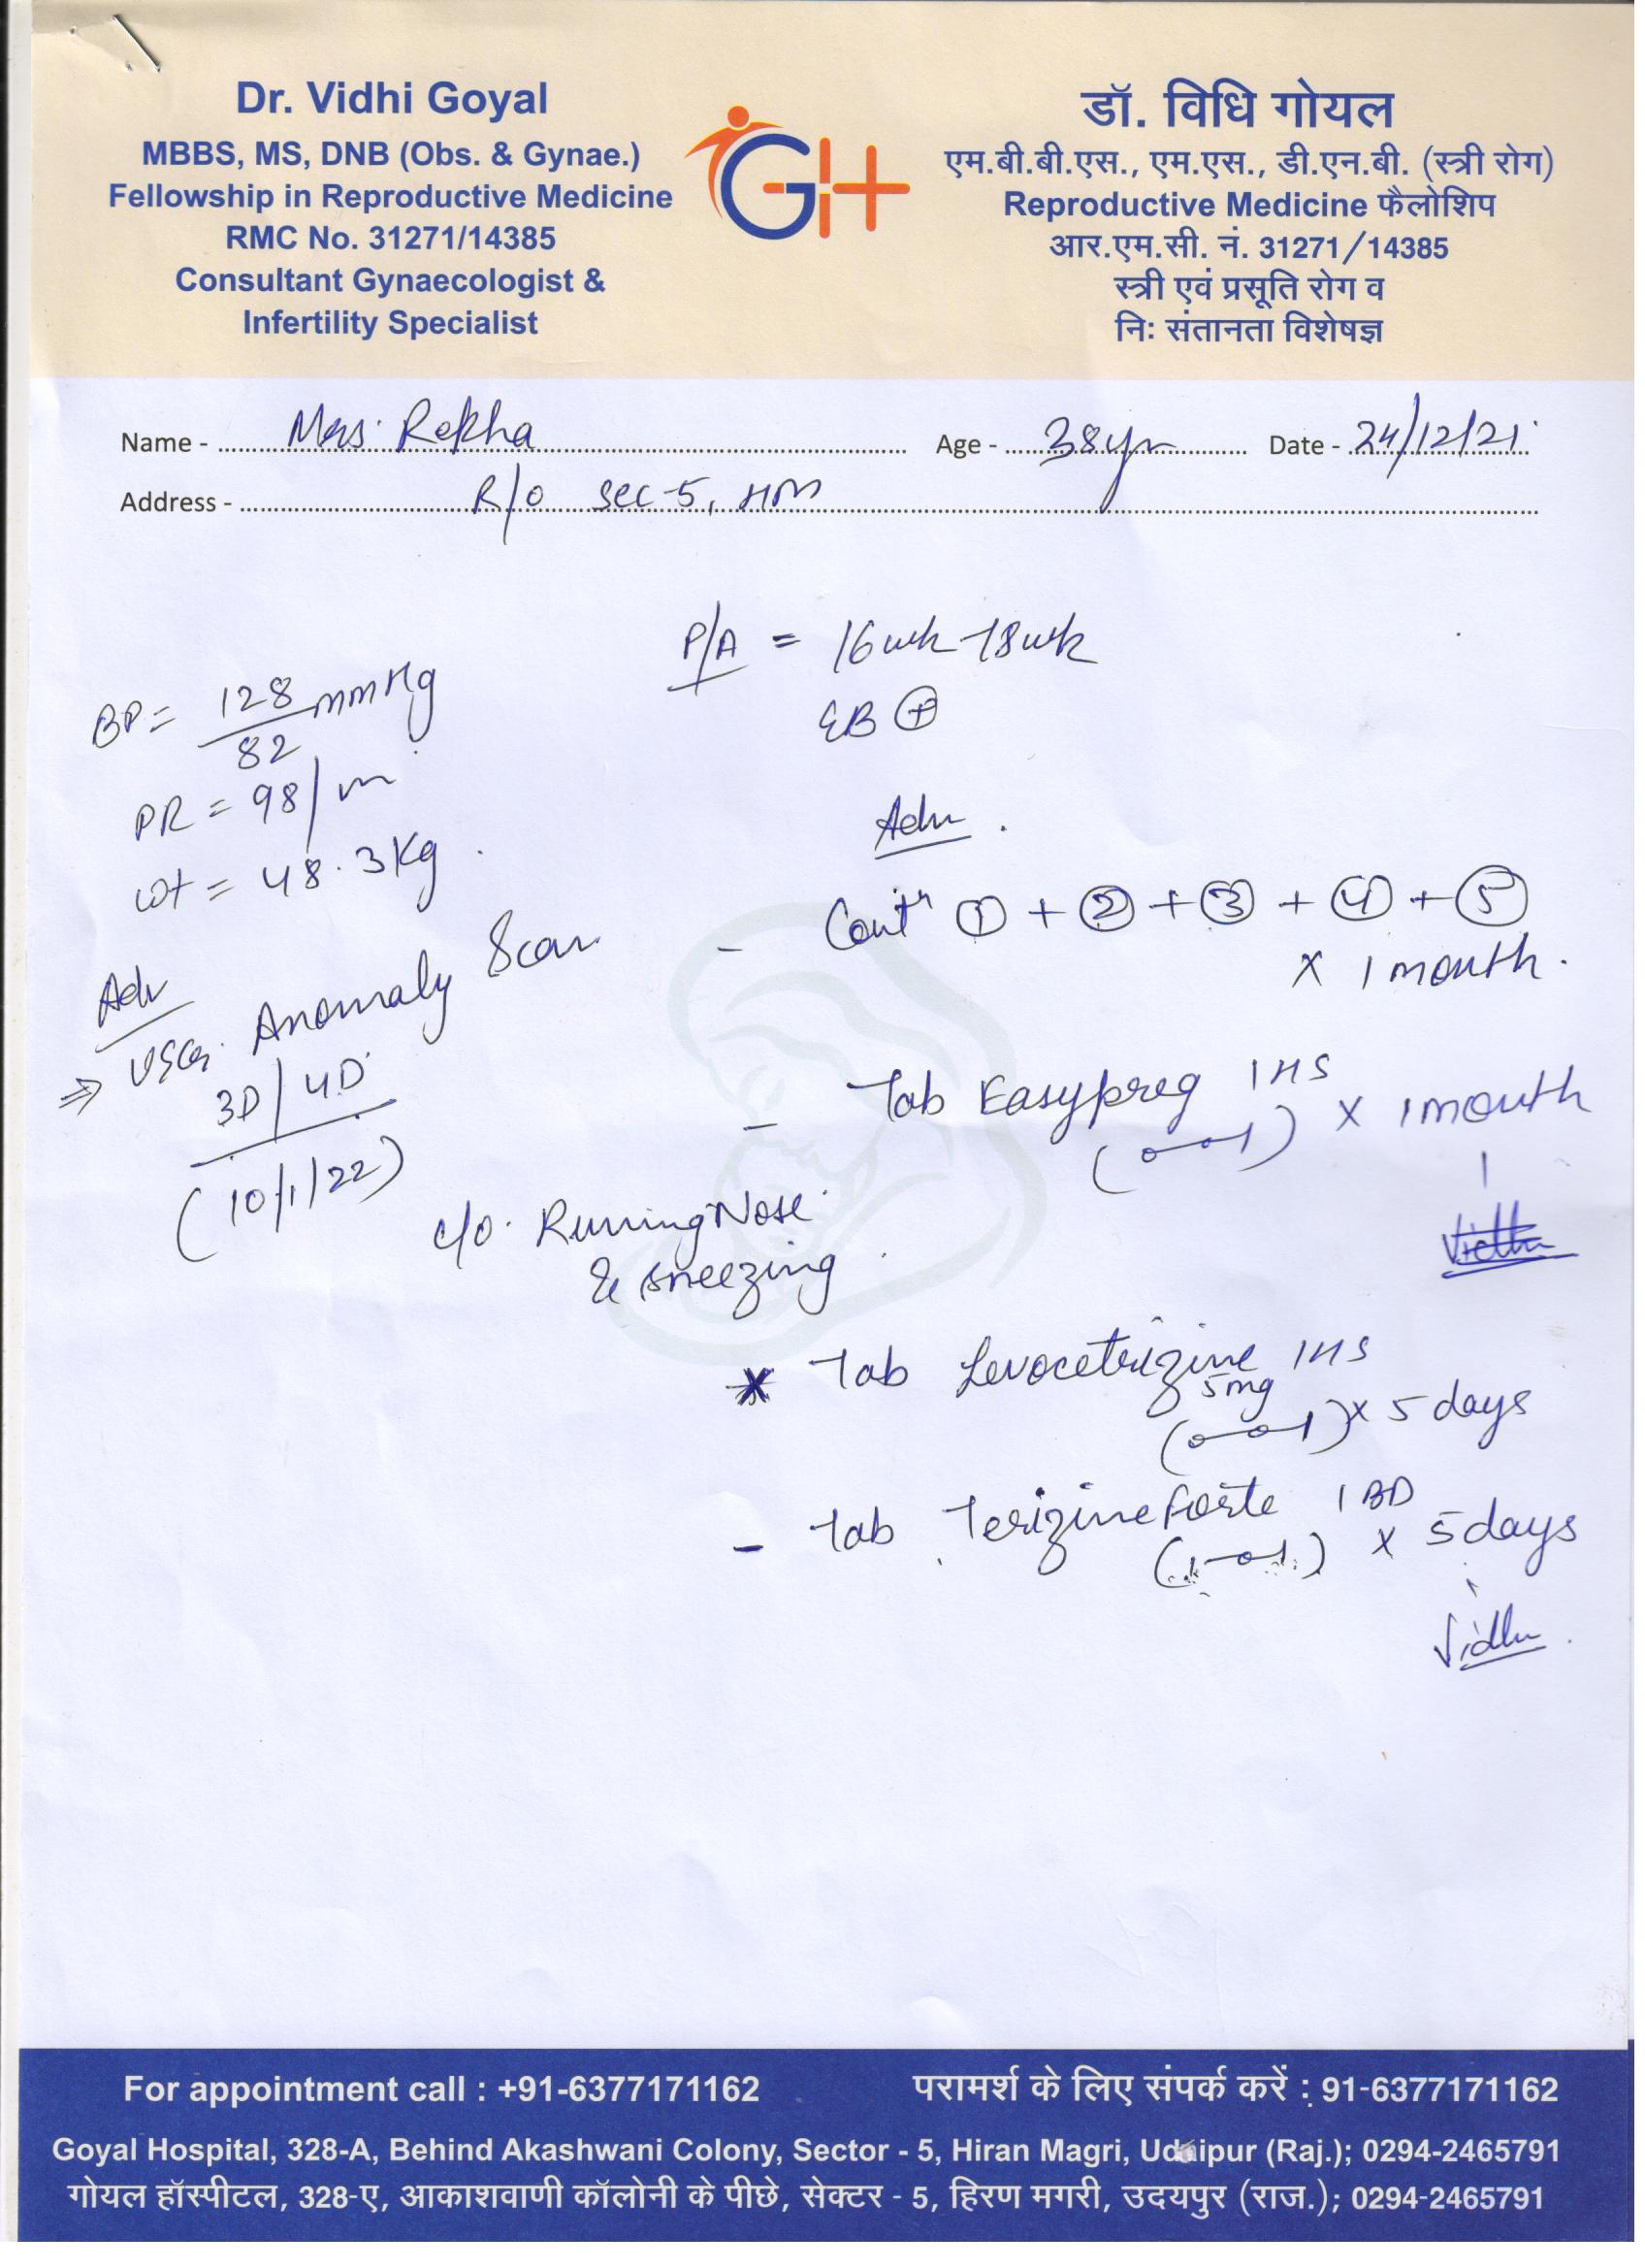 Dr. Vidhi Goyal
MBBS, MS, DNB (Obs. & Gynae.)
Fellowship in Reproductive Medicine
RMC No. 31271/14385
Consultant Gynaecologist &
Infertility Specialist
GH
डॉ. विधि गोयल
एम.बी.बी.एस., एम.एस., डी.एन.बी. (स्त्री रोग)
Reproductive Medicine फैलोशिप
आर.एम.सी. नं. 31271/14385
स्त्री एवं प्रसूति रोग व
निः संतानता विशेषज्ञ
Name - Mrs. Rekha Age - 38yr Date - 24/12/21
Address - R/o sec-5, HM
P/A = 16wk-18wk
EB +
BP = 128/82 mmHg
PR = 98/m
wt = 48.3Kg.
Adv
⇒ USG. Anomaly Scan
3D/4D
(10/1/22)
Adv.
- Contn ① + ② + ③ + ④ + ⑤
x 1 month.
- Tab Easypreg 1HS
(0-0-1) x 1 month
Vidhi
c/o. Running Nose
& sneezing
* Tab Levocetrizine 1HS
5mg
(0-0-1) x 5 days
- Tab Terizine forte 1BD
(1-0-1) x 5 days
Vidhi
For appointment call : +91-6377171162
परामर्श के लिए संपर्क करें : 91-6377171162
Goyal Hospital, 328-A, Behind Akashwani Colony, Sector - 5, Hiran Magri, Udaipur (Raj.); 0294-2465791
गोयल हॉस्पीटल, 328-ए, आकाशवाणी कॉलोनी के पीछे, सेक्टर - 5, हिरण मगरी, उदयपुर (राज.); 0294-2465791